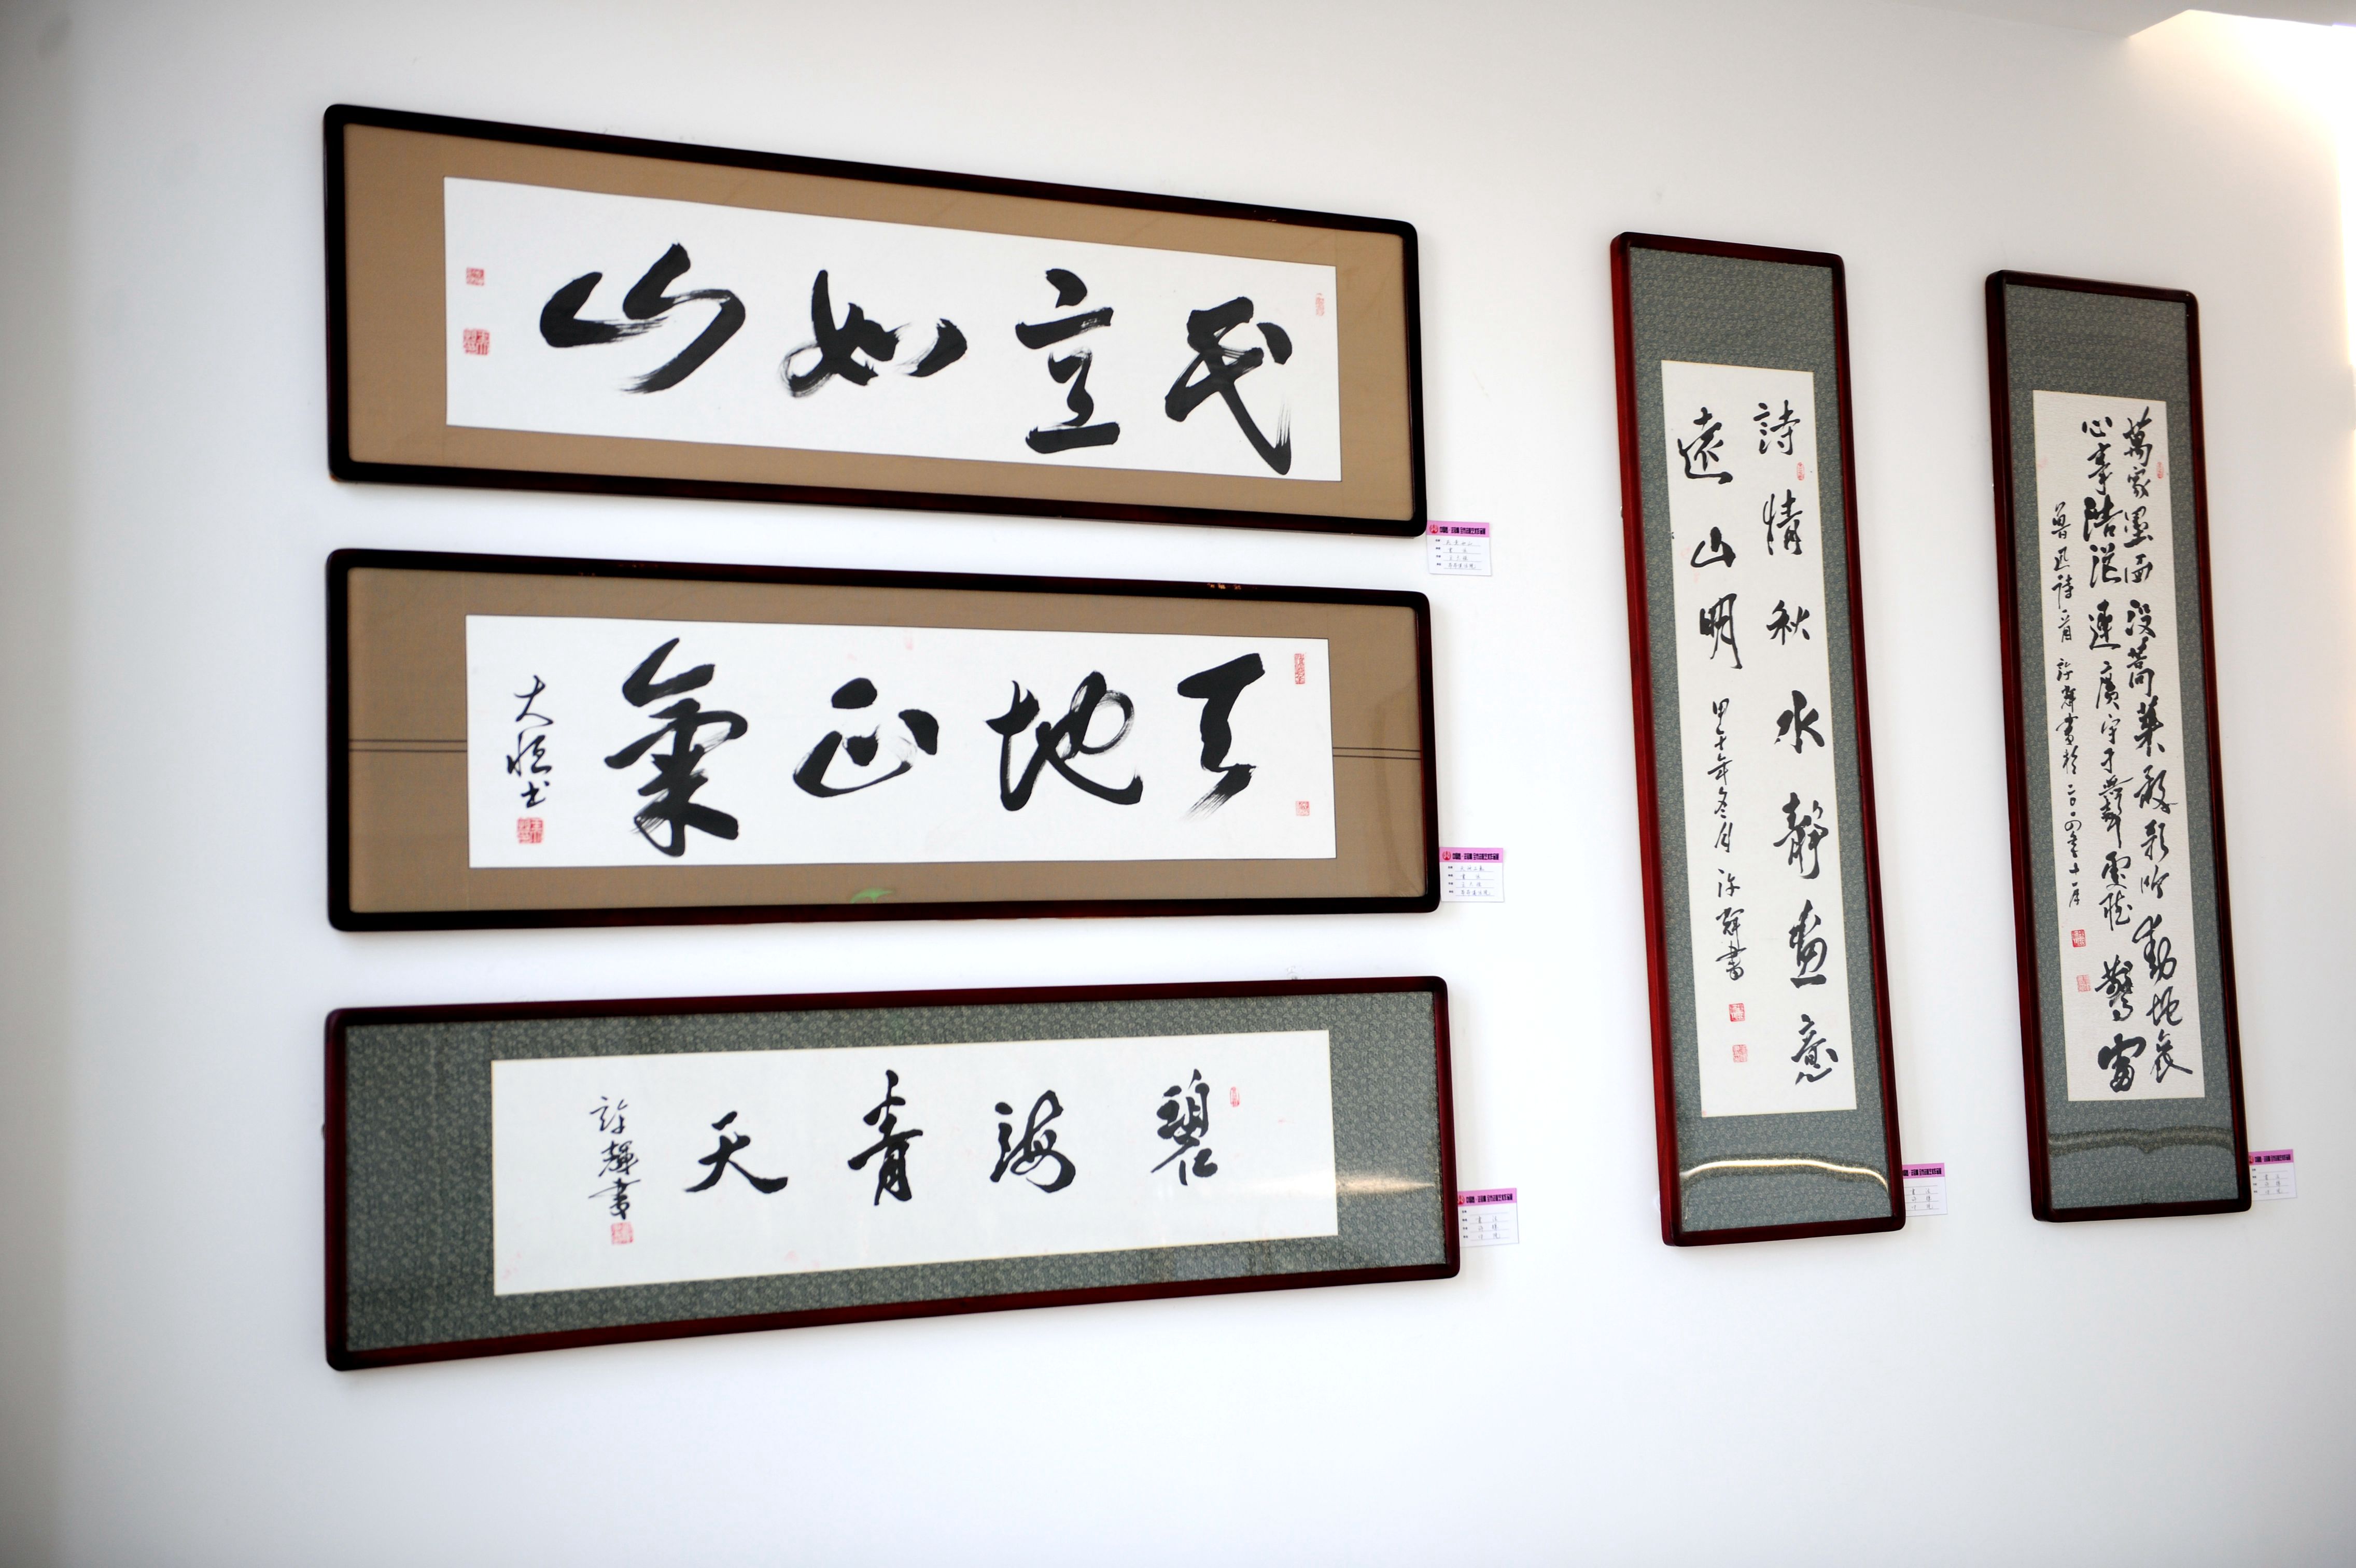 民立如山
天地正氣
大恒书
碧海青天
許輝書
詩情秋水靜畫意
遠山明 甲午年冬月 许輝書
萬家墨面没蒿萊敢歌吟動地哀
心事浩茫連廣宇于無聲處聽驚雷
魯迅詩一首 許輝書於